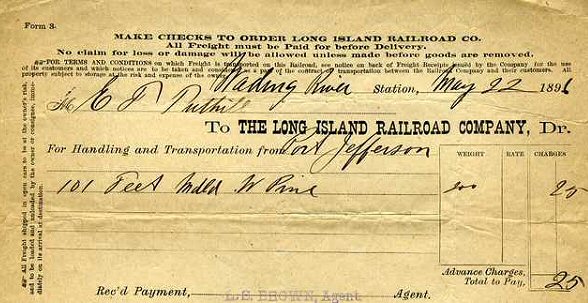 Form 3.
MAKE CHECKS TO ORDER LONG ISLAND RAILROAD CO.
All Freight must be Paid for before Delivery.
No claim for loss or damage will be allowed unless made before goods are removed.
FOR TERMS AND CONDITIONS on which Freight is transported on this Railroad, see notice on back of Freight Receipts issued by the Company for the use
of its customers and which notices are to be taken and considered as a part of the contract for transportation between the Railroad Company and their customers. All
property subject to storage at the risk and expense of the owner
Wading River Station, May 22 1891
E T Tuthill
To THE LONG ISLAND RAILROAD COMPANY, Dr.
For Handling and Transportation from Port Jefferson
WEIGHT RATE CHARGES
101 Feet Mdld W Pine 200 25
Advance Charges,
Total to Pay, 25
Rec'd Payment, L.S. BROWN, Agent Agent.
All Freight shipped in open cars to be at the owner's risk,
and to be loaded and unloaded by the owner or consignee, imme-
diately on its arrival at destination.